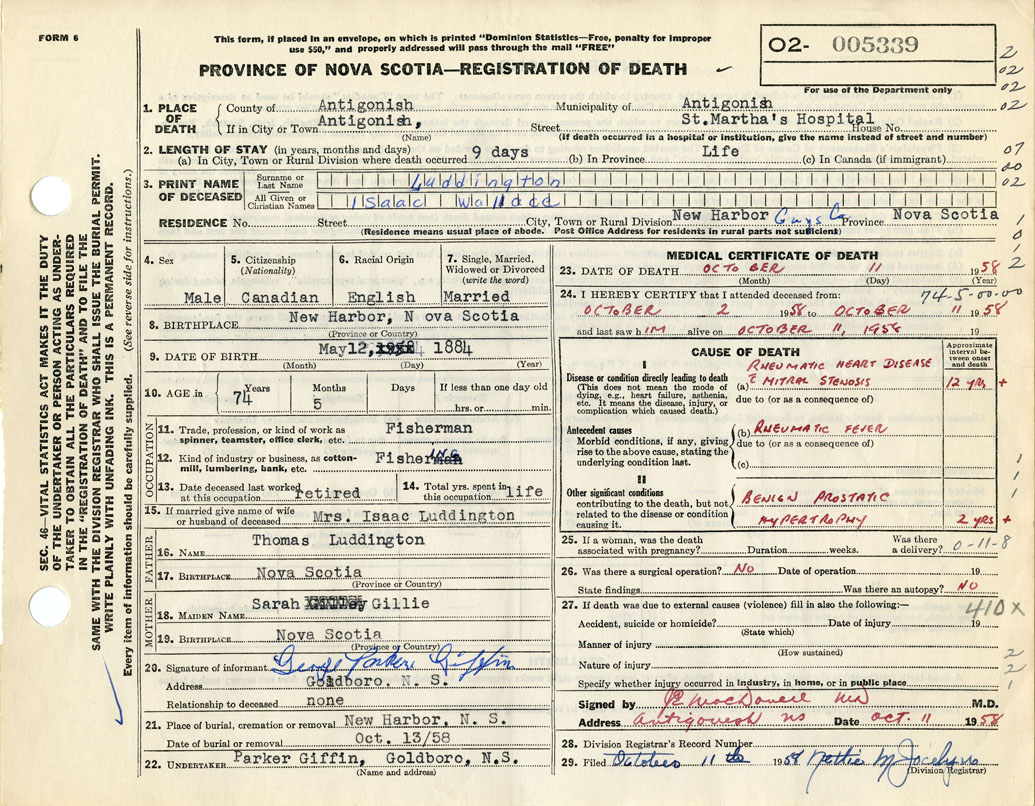 FORM 6
This form, if placed in an envelope, on which is printed "Dominion Statistics—Free, penalty for improper
use $50," and properly addressed will pass through the mail "FREE"
PROVINCE OF NOVA SCOTIA—REGISTRATION OF DEATH
O2- 005339
For use of the Department only
2
02
02
02
07
00
02
1
0
1
2
SEC. 46—VITAL STATISTICS ACT MAKES IT THE DUTY
OF THE UNDERTAKER OR PERSON ACTING AS UNDER-
TAKER TO OBTAIN ALL THE PARTICULARS REQUIRED
IN THE "REGISTRATION OF DEATH" AND TO FILE THE
SAME WITH THE DIVISION REGISTRAR WHO SHALL ISSUE THE BURIAL PERMIT.
WRITE PLAINLY WITH UNFADING INK. THIS IS A PERMANENT RECORD.
Every item of information should be carefully supplied. (See reverse side for instructions.)
1. PLACE OF DEATH County of Antigonish Municipality of Antigonish
If in City or Town Antigonish, Street St.Martha's Hospital House No.
(Name) (If death occurred in a hospital or institution, give the name instead of street and number)
2. LENGTH OF STAY (in years, months and days)
(a) In City, Town or Rural Division where death occurred 9 days (b) In Province Life (c) In Canada (if immigrant)
3. PRINT NAME OF DECEASED Surname or Last Name Luddington
All Given or Christian Names Isaac Wallace
RESIDENCE No. Street City, Town or Rural Division New Harbor Guys Co Province Nova Scotia
(Residence means usual place of abode. Post Office Address for residents in rural parts not sufficient)
4. Sex 5. Citizenship (Nationality) 6. Racial Origin 7. Single, Married, Widowed or Divorced (write the word)
Male Canadian English Married
8. BIRTHPLACE New Harbor, N ova Scotia
(Province or Country)
9. DATE OF BIRTH May 12, 1884
(Month) (Day) (Year)
10. AGE in Years Months Days If less than one day old
74 5 hrs. or min.
OCCUPATION
11. Trade, profession, or kind of work as spinner, teamster, office clerk, etc. Fisherman
12. Kind of industry or business, as cotton-mill, lumbering, bank, etc. Fishering
13. Date deceased last worked at this occupation retired 14. Total yrs. spent in this occupation life
15. If married give name of wife or husband of deceased Mrs. Isaac Luddington
FATHER
16. NAME Thomas Luddington
17. BIRTHPLACE Nova Scotia
(Province or Country)
MOTHER
18. MAIDEN NAME Sarah Gillie
19. BIRTHPLACE Nova Scotia
(Province or Country)
20. Signature of informant George Parker Giffin
Address Goldboro. N. S.
Relationship to deceased none
21. Place of burial, cremation or removal New Harbor, N. S.
Date of burial or removal Oct. 13/58
22. UNDERTAKER Parker Giffin, Goldboro, N.S.
(Name and address)
MEDICAL CERTIFICATE OF DEATH
23. DATE OF DEATH OCTOBER 11 1958
(Month) (Day) (Year)
74-5-00-00
24. I HEREBY CERTIFY that I attended deceased from:
OCTOBER 2 1958 to OCTOBER 11 1958
and last saw hIM alive on OCTOBER 11, 1958 19
CAUSE OF DEATH
Approximate interval between onset and death
I
Disease or condition directly leading to death
(This does not mean the mode of dying, e.g., heart failure, asthenia, etc. It means the disease, injury, or complication which caused death.)
RHEUMATIC HEART DISEASE
(a) MITRAL STENOSIS 12 yrs +
due to (or as a consequence of)
Antecedent causes
Morbid conditions, if any, giving rise to the above cause, stating the underlying condition last.
(b) RHEUMATIC FEVER
due to (or as a consequence of)
(c)
II
Other significant conditions
contributing to the death, but not related to the disease or condition causing it.
BENIGN PROSTATIC
HYPERTROPHY 2 yrs +
1
1
1
25. If a woman, was the death associated with pregnancy? Duration weeks. Was there a delivery? 0-11-8
26. Was there a surgical operation? NO Date of operation 19
State findings Was there an autopsy? NO
27. If death was due to external causes (violence) fill in also the following:— 410X
Accident, suicide or homicide? Date of injury 19
(State which)
Manner of injury
(How sustained)
Nature of injury
2
2
1
Specify whether injury occurred in industry, in home, or in public place
Signed by MacDonell MD M.D.
Address Antigonish NS Date OCT. 11 1958
28. Division Registrar's Record Number
29. Filed October 11th 1958 Nettie M Jocelyn
(Division Registrar)